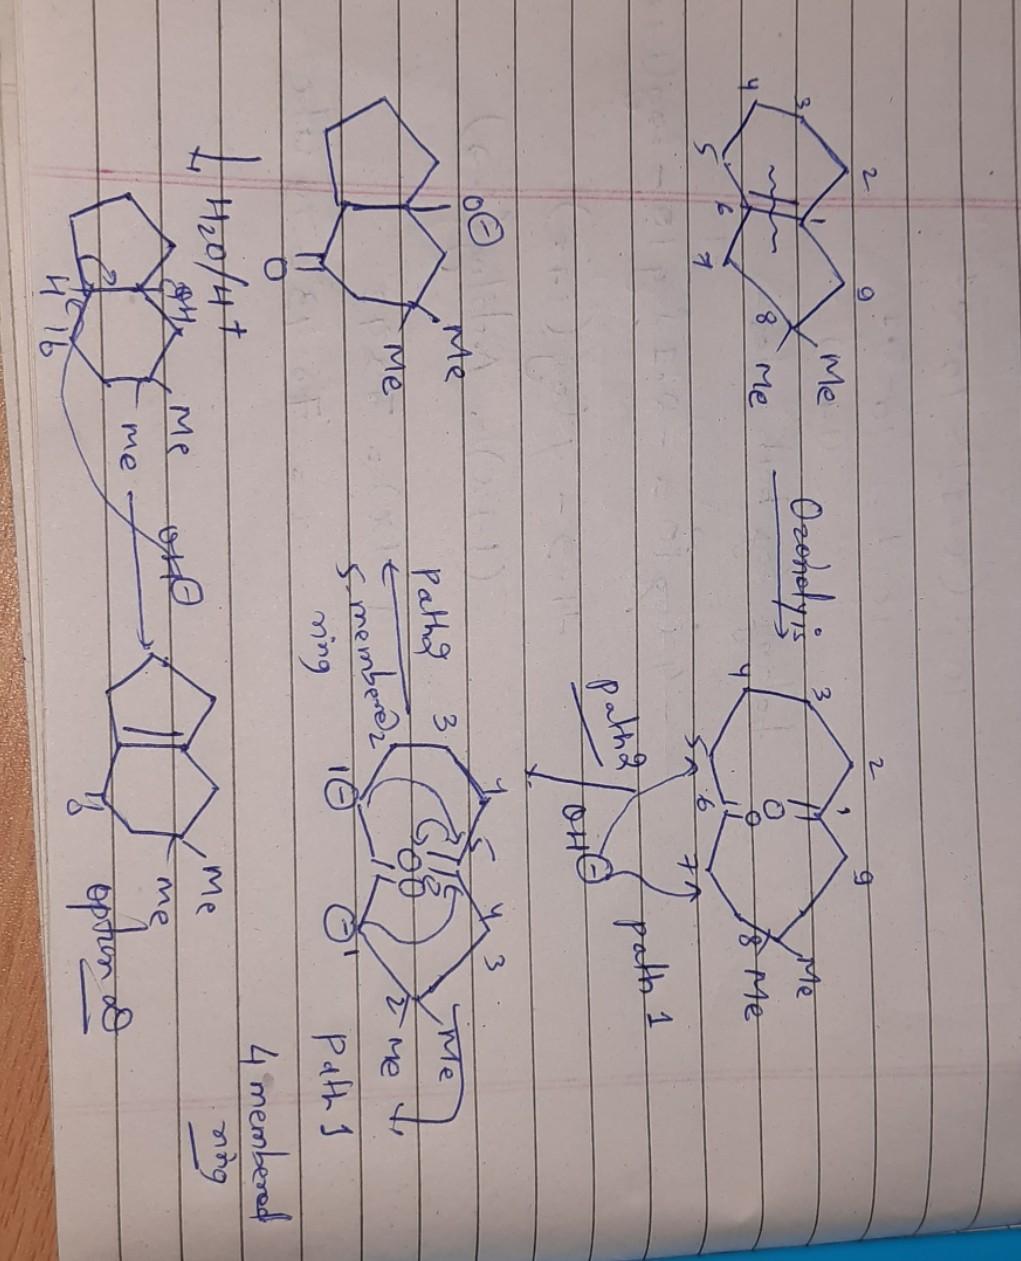 2
3
4
5
6
7
8
9
1
Me
Me
Ozonolyis
2
3
4
5
6
7
8
9
1
O
O
Me
Me
OH⊖
path 1
path2
path2
5 membered
ring
1
2
3
4
5
⊖
O
O
⊖
1
2
3
4
Me
Me
path 1
4 membered
ring
O⊖
O
Me
Me
H2O/H+
OH
H
Me
me
OH⊖
O
Me
me
option